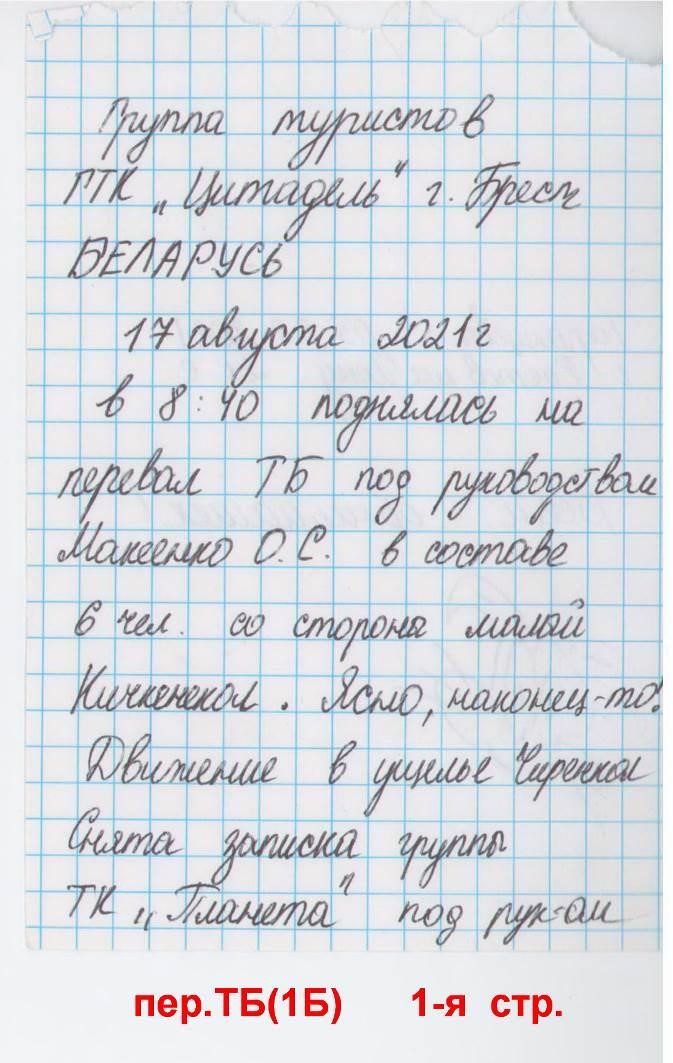 Группа туристов
ГТК „Цитадель" г. Брест
БЕЛАРУСЬ
17 августа 2021г
в 8:40 поднялась на
перевал ТБ под руководством
Макеенко О.С. в составе
6 чел. со стороны малой
Кичкенекол. Ясно, наконец-то!
Движение в ущелье Чиренкол
Снята записка группы
ТК „Планета" под рук-ом
пер.ТБ(1Б) 1-я стр.